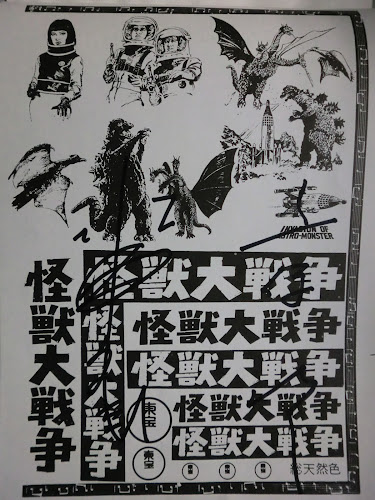 INVASION OF
ASTRO-MONSTER
怪獣大戦争
怪獣大戦争
怪獣大戦争
怪獣大戦争
怪獣大戦争
怪獣大戦争
怪獣大戦争
東宝
東宝
総天然色